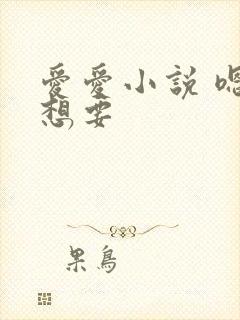 愛愛小說嗯
想要
果鳥